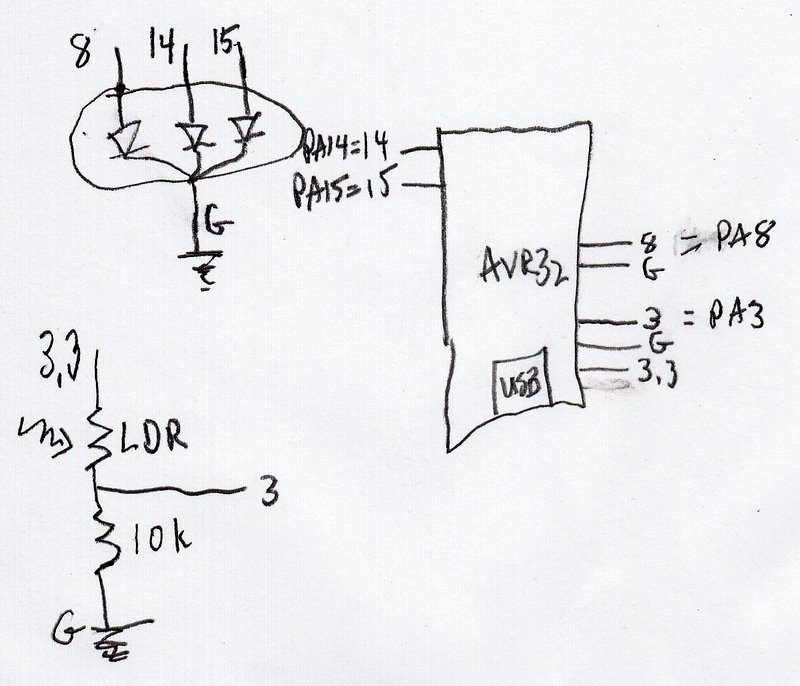 8 14 15
PA14=14
PA15=15
G
AVR32
8 = PA8
G
3 = PA3
G
3,3
USB
3,3
LDR
3
10k
G